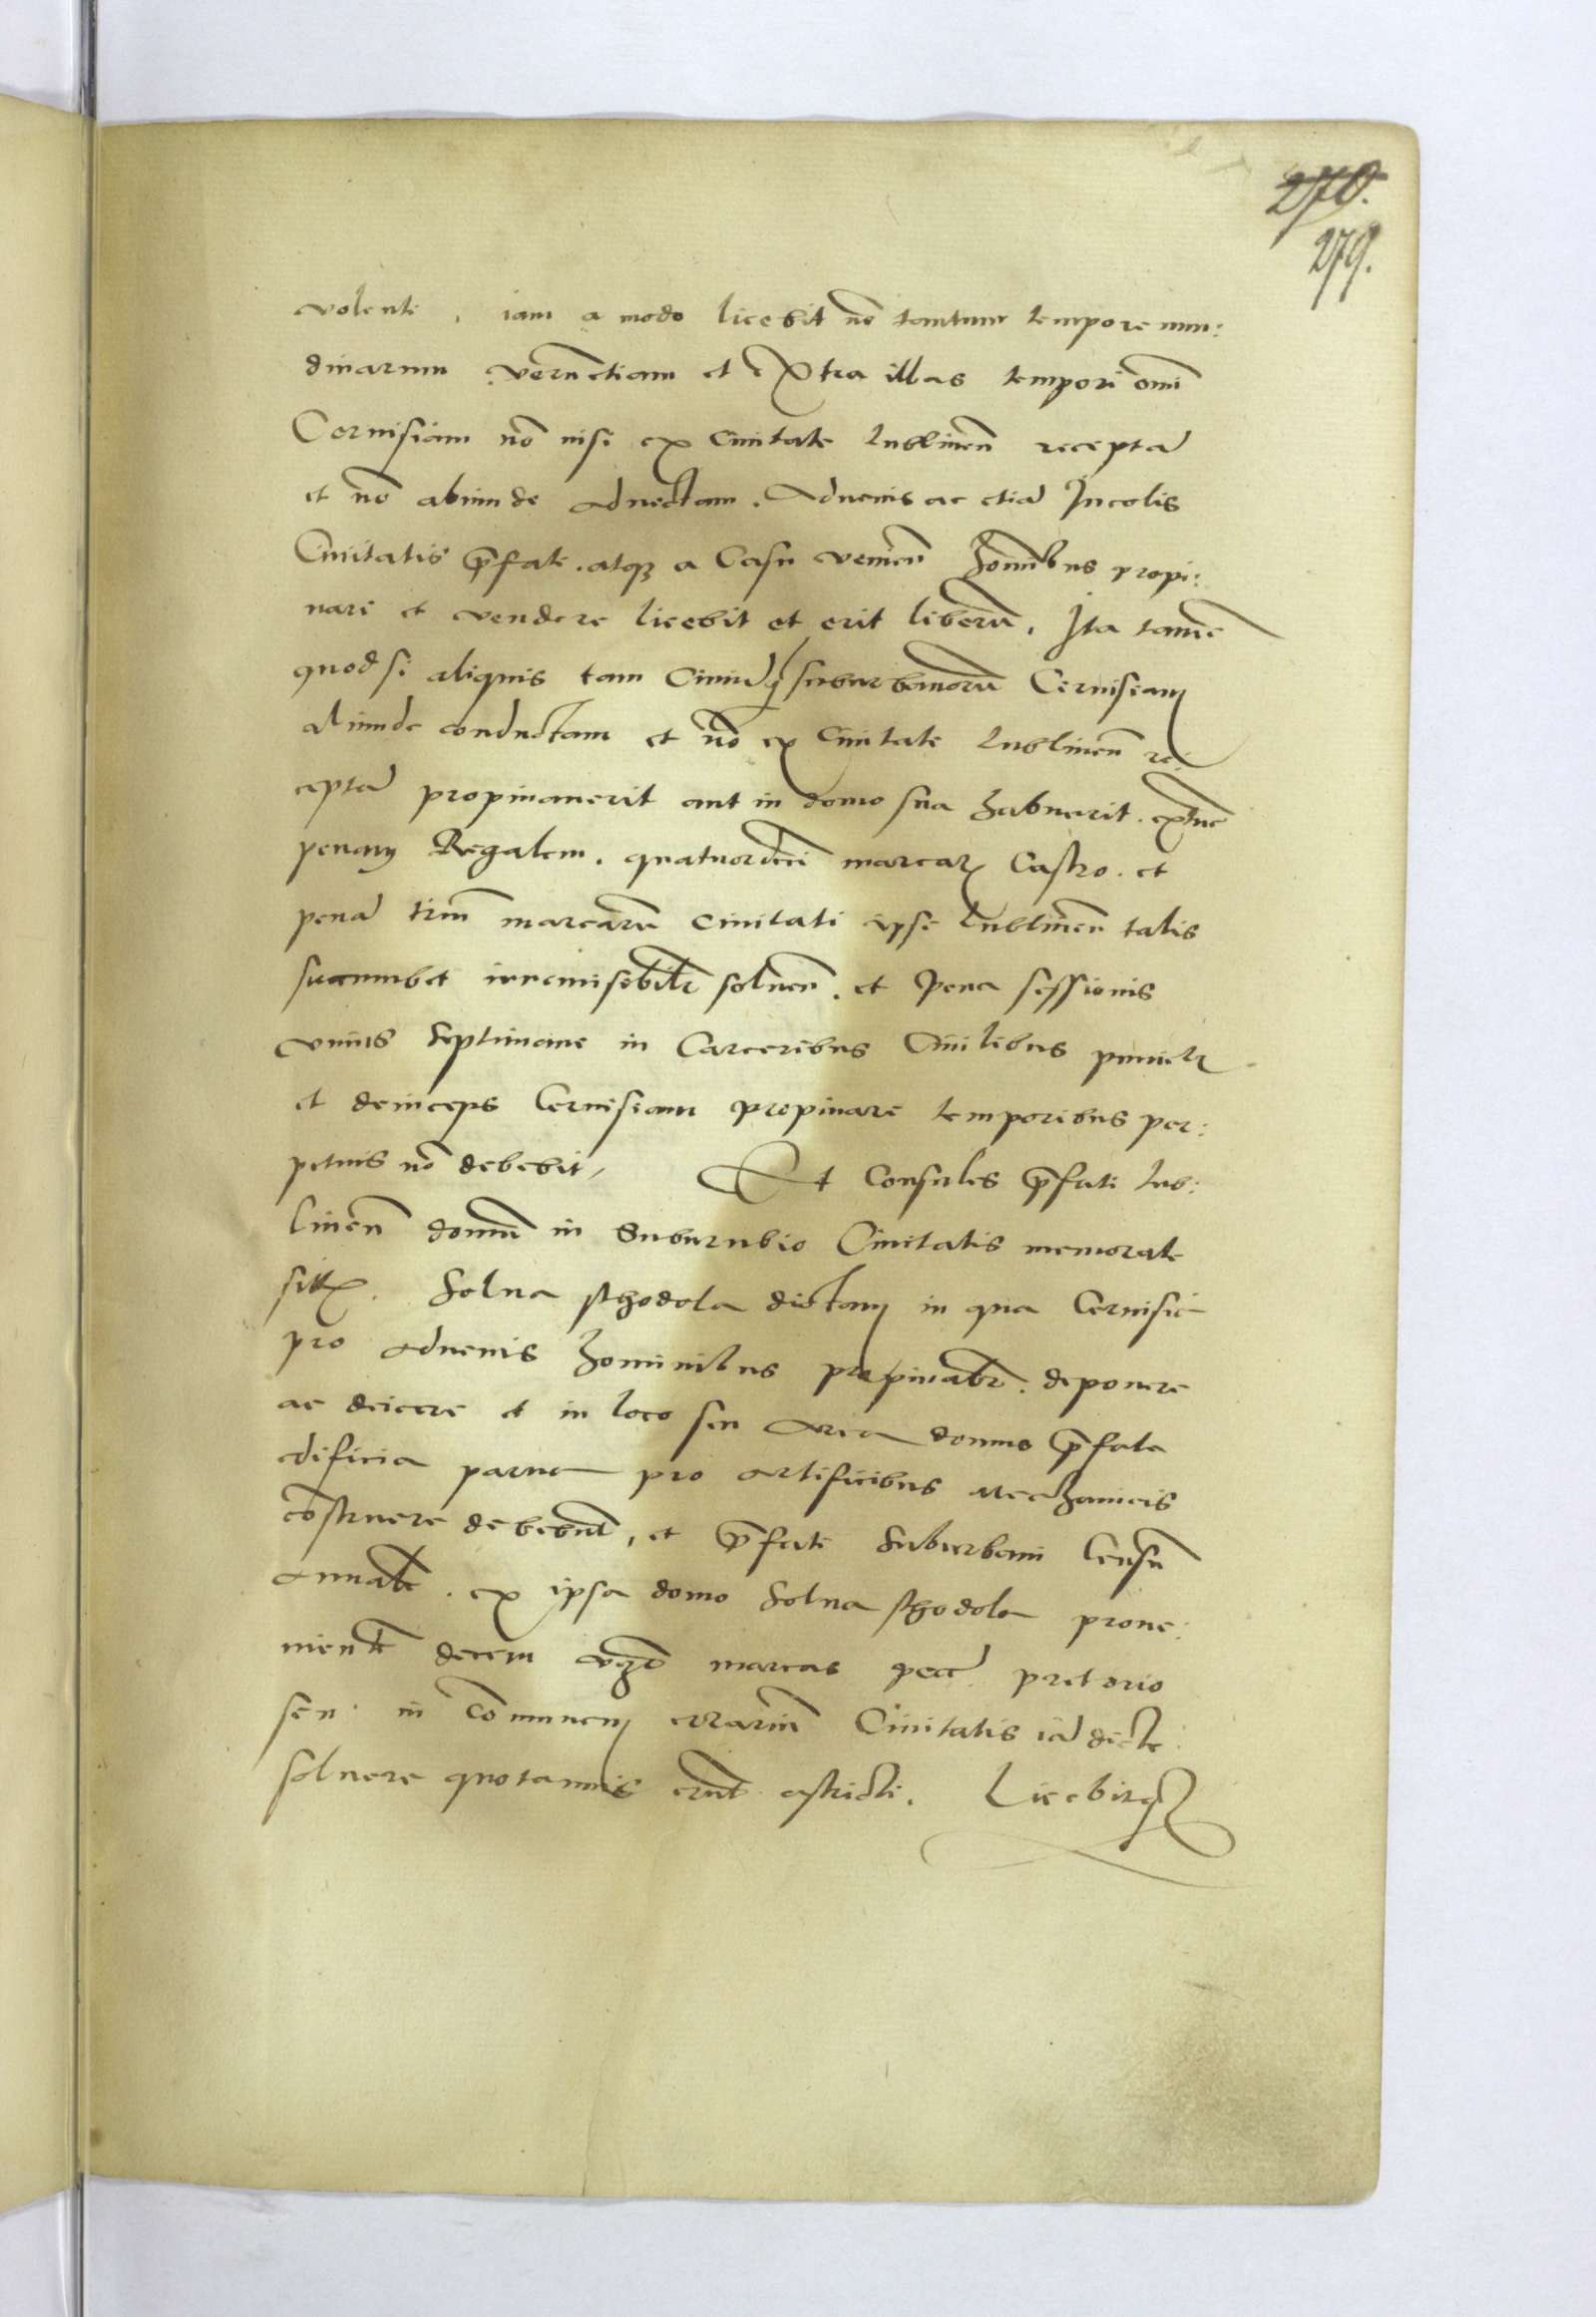 270.
279.
volenti, iam a modo licebit nō tantum tempore nun:
dinarum verūetiam et extra illas tempori omī
Cervisiam nō nisi ex Civitate Lublineñ receptā
et nō aliunde advectam. Advenis ac etiā Incolis
Civitatis p̄fate. atq3 a Casu venieñ hoīnibus propi:
nare et vendere licebit et erit liberū. Ita tamē
quod si aliquis tam Civiū q̄ suburbanorū Cervisiam
aliunde conductam et nō ex Civitate Lublineñ re:
ceptā propinaverit aut in domo sua habuerit. extūc
penam Regalem. quatuordeci marcarꝫ Castro. et
penā triū marcarū Civitati ipsi Lublineñ talis
succumbet irremisibilr̄ solveñ. et pena sessionis
unius Septimane in Carceribus Civilibus punietr
et deinceps Cervisiam propinare temporibus per:
petuis nō debebit, Et Consules p̄fati Lub:
lineñ domū in Suburubio Civitatis memorate
sitā. Solna sthodola dictam in qua Cervisia
pro advenis hominibus propinabr̄. deponere
ac deicere et in loco seu area domus p̄fate
edificia parva pro artificibus Mechanicis
cōstruere debebūt, et p̄fati Suburbani Censū
annualē. ex ipsa domo Solna sthodola prove:
nientē decem vꝫ marcas pecc̄ pretorio
seu in cōmunem errariū Civitatis iā dicte
solvere quotannis erūt astricti. Licebitqꝫ